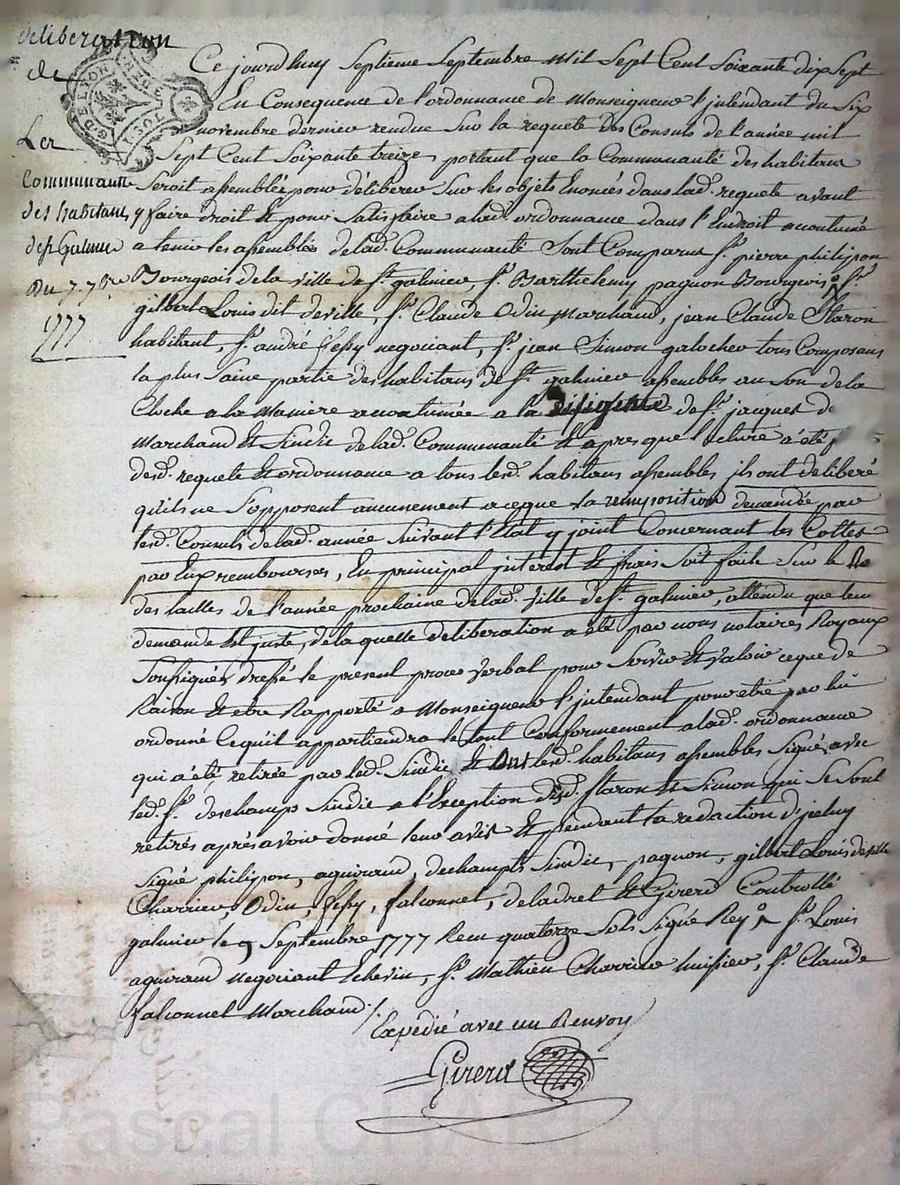 deliberation
de
Ler
Communauté
des habitans
de st Galmier
Du 7. 7bre
1777
G. DE LYON
Ce jourdhuy Septieme Septembre Mil Sept Cent Soixante dix Sept
En Consequence de l'ordonnance de Monseigneur l'intendant du Six
novembre dernier rendue Sur la requete des Consuls de l'année mil
Sept Cent Soixante treize, portant que la Communauté des habitans
Seroit assemblée pour délibérer Sur les objets Enoncés dans lad. requete avant
y faire droit Et pour Satisfaire a lad. ordonnance dans l'Endroit acoutumé
a tenir les assemblés de lad. Communauté Sont Comparus Sr. pierre philipon
Bourgeois de la ville de St. galmier, Sr. Barthelemy pagnon Bourgeois, Sr.
gilbert Louis dit deville, Sr. Claude Odin Marchand, jean Claude Staron
habitant, Sr. andré Fessy negociant, Sr. jean Simon galocher tous Composans
la plus Saine partie des habitans de St. galmier assembles au Son de la
Cloche a la Maniere acoutumée a la diligence de Sr. jacques
Marchand Et Sindic de lad. Communauté Et apres que lecture a été
desd. requete Et ordonnance a tous lesd. habitans assembles ils ont deliberé
qu'ils ne S'opposent aucunement a ceque la reimposition demandée par
lesd. Consuls de lad. année Suivant l'Etat y joint Concernant les Cottes
par Eux rembourses, En principal interest Et frais Soit faite Sur le
des tailles de l'année prochaine de lad. ville de St. galmier, attendu que leur
demande Est juste, de la quelle deliberation a été par nous notaires Royaux
Soussignés dressé le present proces verbal pour Servir Et valoir ceque de
Raison Et etre Rapporté a Monseigneur l'intendant pour etre par lui
ordonné Cequ'il appartiendra le tout Conformement a lad. ordonnance
qui a été retirée par led. Sindic Et Ont lesd. habitans assembles Signé, avec
led. Sr. deschamps Sindic a l'Exception desd. Staron Et Simon qui Se Sont
retirés après avoir donné leur avis Et pendant la redaction d'jceluy
Signé philipon, aguiraud, dechampts Sindic, pagnon, gilbert Louis deville
Charrier, Odin, Fessy, falconnet, deladret Et Girerd Controllé
galmier le 9 Septembre 1777 Recu quatorze Sols Signé Rey Sr. Louis
aguiraud negociant Echevin, Sr. Mathieu Charrier huissier, Sr. Claude
falconnet Marchand ./.
Expedié avec un Renvoy
Girerd
Pascal